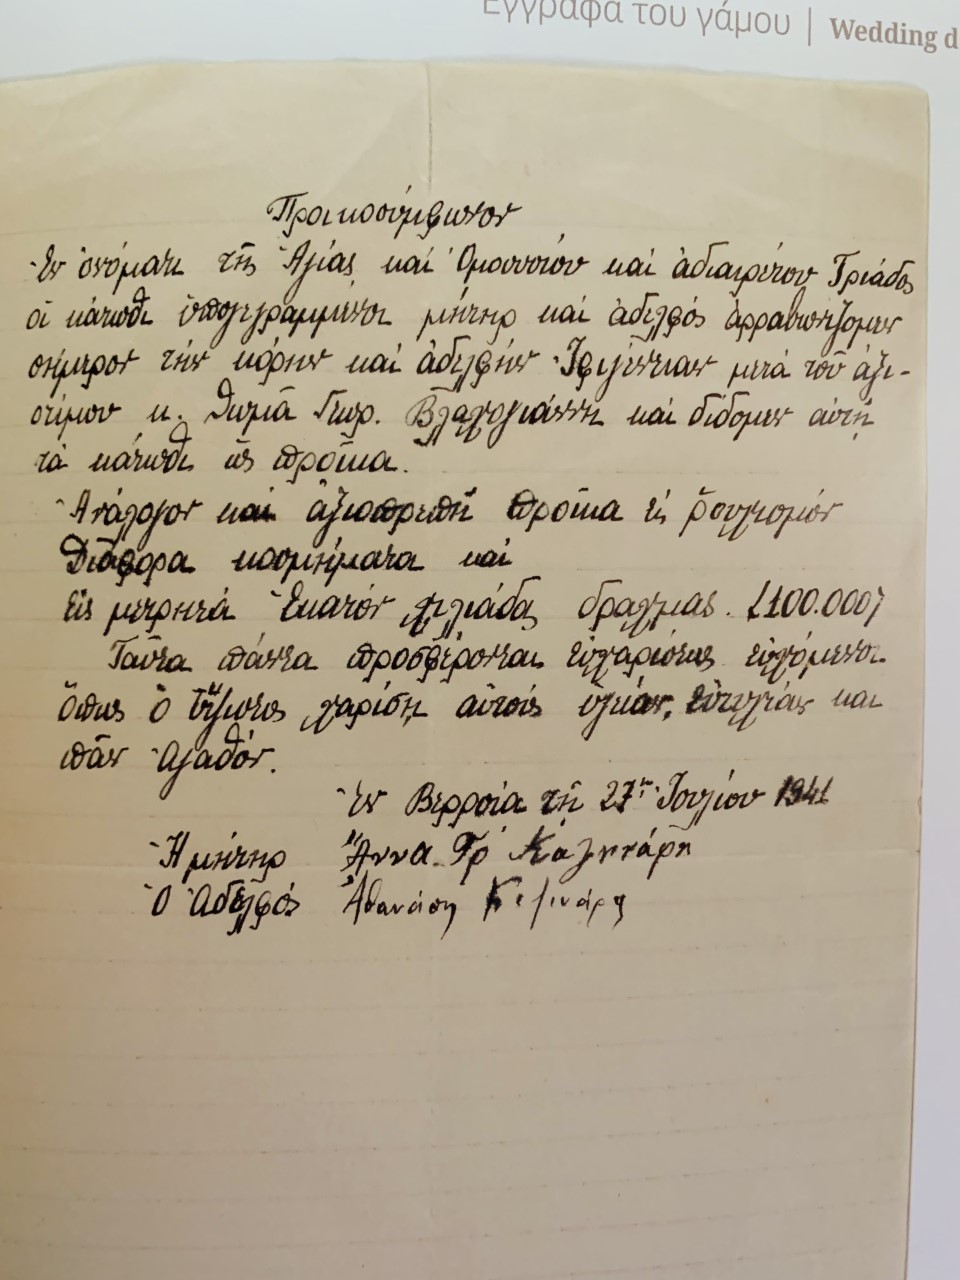 Έγγραφα του γάμου | Wedding d
Προικοσύμφωνον
Ἐν ὀνόματι τῆς Ἁγίας καί Ὁμοουσίου καί ἀδιαιρέτου Τριάδος
οἱ κάτωθι ὑπογεγραμμένοι μήτηρ καί ἀδελφός ἀρραβωνίζομεν
σήμερον τήν κόρην καί ἀδελφήν Ἰφιγένειαν μετά τοῦ ἀξι-
οτίμου κ. Θωμᾶ Γεωρ. Βλαχογιάννη καί δίδομεν αὐτῇ
τά κάτωθι ὡς προῖκα.
Ἀνάλογον καί ἀξιοπρεπῆ προῖκα εἰς ρουχισμόν
Διάφορα κοσμήματα καί
Εἰς μετρητά Ἑκατόν χιλιάδας δραχμάς. (100.000)
Ταῦτα πάντα προσφέρονται εὐχαρίστως εὐχόμενοι
ὅπως ὁ Ὕψιστος χαρίσῃ αὐτοῖς ὑγείαν, εὐτυχίαν και
πᾶν ἀγαθόν.
Ἐν Βερροία τῇ 27ῃ Ἰουλίου 1941
Ἡ μήτηρ Ἄννα Γρ
Ὁ Ἀδελφός Ἀθανάσης